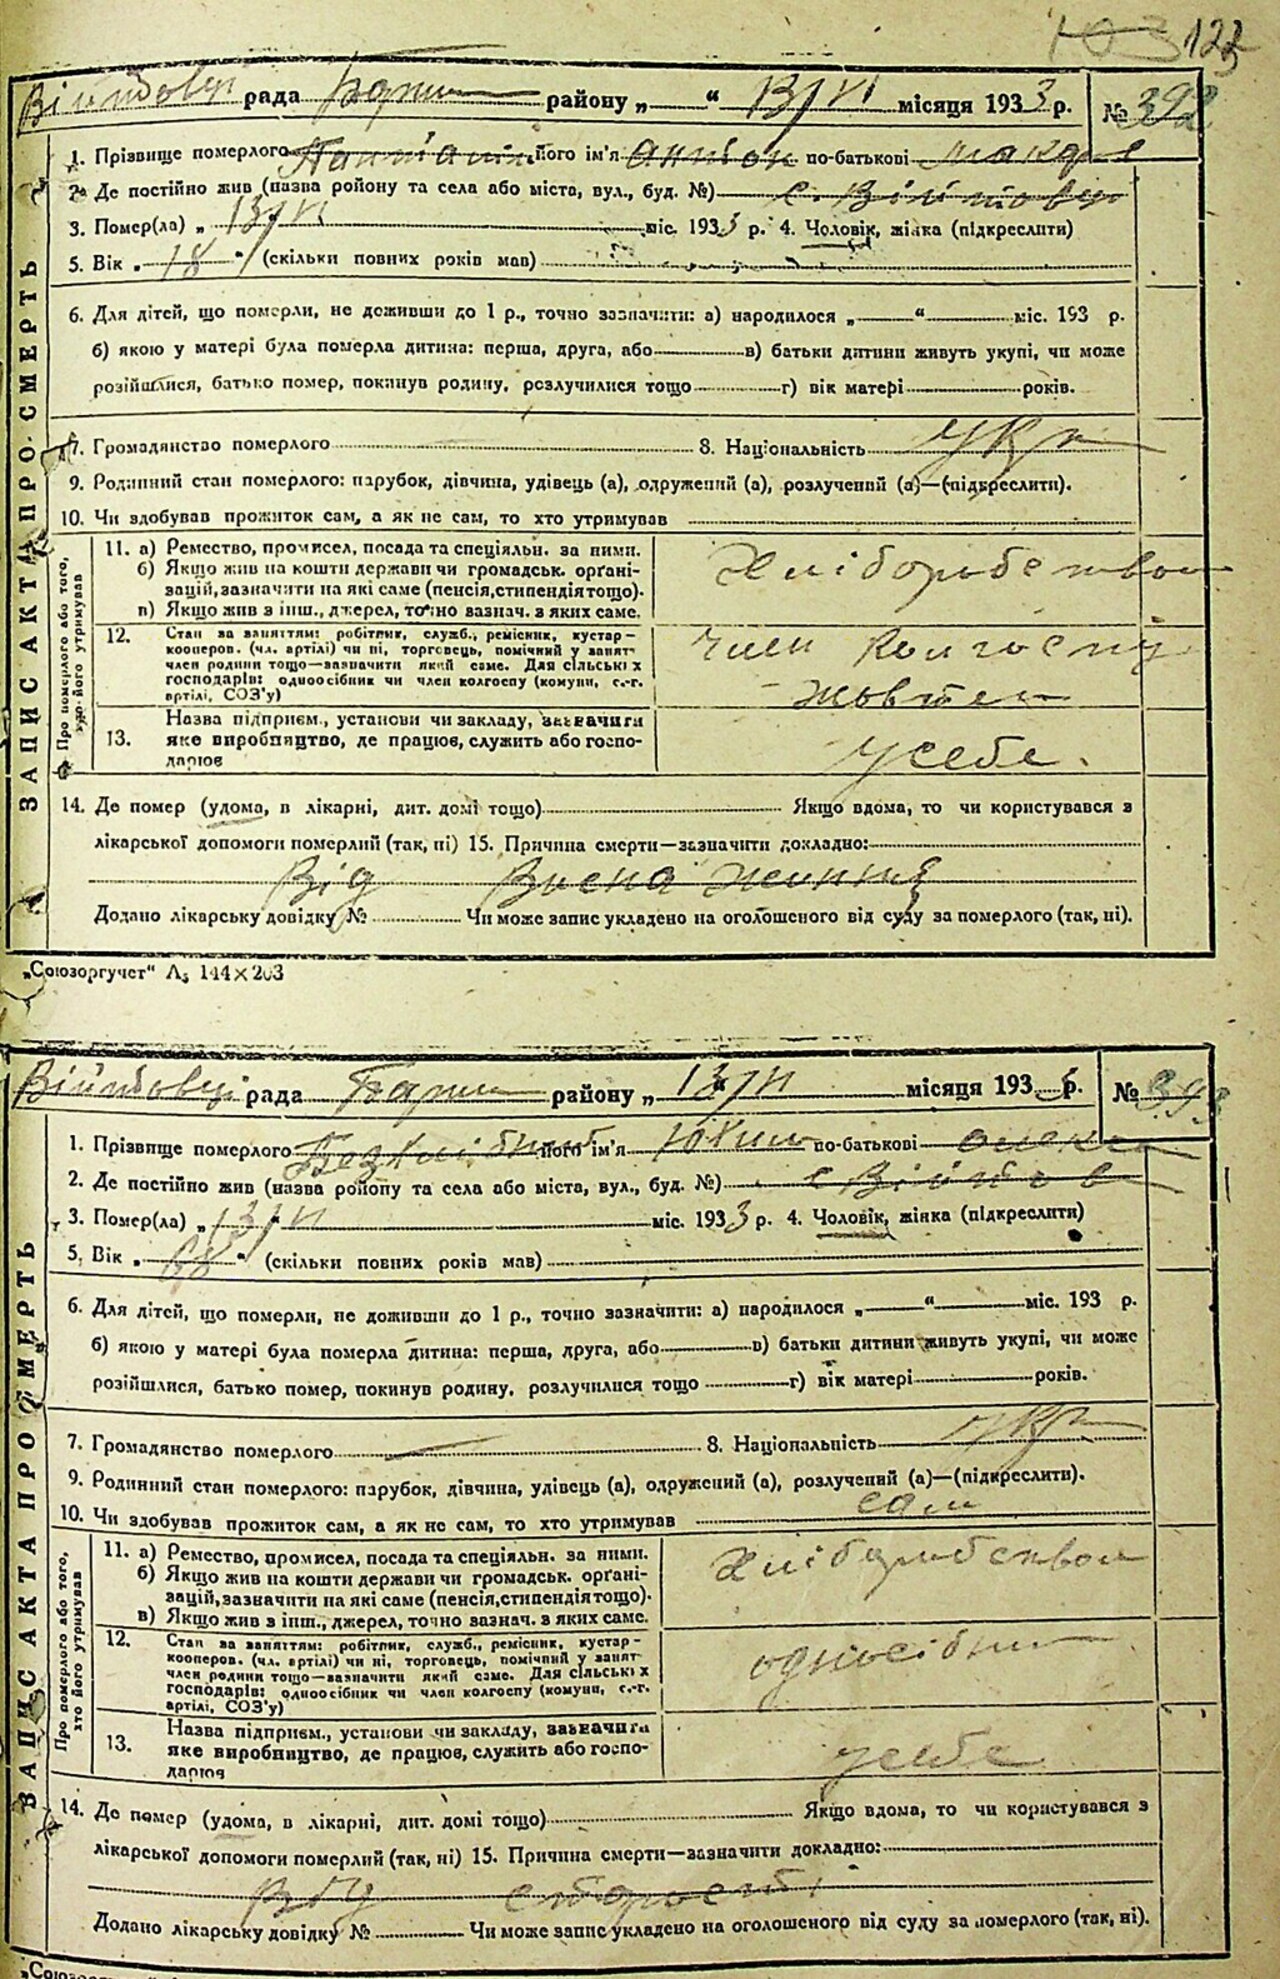 103 123
Війтовці рада Барськ району „ “ 13/VI місяця 1933 р. № 392
ЗАПИС АКТА ПРО СМЕРТЬ
1. Прізвище померлого його ім'я Антон по-батькові Макар
2. Де постійно жив (назва району та села або міста, вул., буд. №) с. Війтовці
3. Помер(ла) „ 13/VI міс. 1933 р. 4. Чоловік, жінка (підкреслити)
5. Вік „ 18 “ (скільки повних років мав)
6. Для дітей, що померли, не доживши до 1 р., точно зазначити: а) народилося „ “ міс. 193 р.
б) якою у матері була померла дитина: перша, друга, або в) батьки дитини живуть укупі, чи може
розійшлися, батько помер, покинув родину, розлучилися тощо г) вік матері років.
7. Громадянство померлого 8. Національність укр
9. Родинний стан померлого: парубок, дівчина, удівець (а), одружений (а), розлучений (а)—(підкреслити).
10. Чи здобував прожиток сам, а як не сам, то хто утримував
Про померлого або того, хто його утримував
11. а) Ремество, промисел, посада та спеціяльн. за ними.
б) Якщо жив на кошти держави чи громадськ. орґані-
зацій, зазначити на які саме (пенсія, стипендія тощо).
в) Якщо жив з інш., джерел, точно вазнач. з яких саме.
Хліборобством
12. Стан за заняттям: робітник, служб., ремісник, кустар-
кооперов. (чл. артілі) чи ні, торговець, помічний у занят-
член родини тощо—зазначити який саме. Для сільських
господарів: одноосібник чи член колгоспу (комуни, с.-г.
артілі, СОЗ'у)
член колгоспу
Жовтень
13. Назва підприєм., установи чи закладу, зазначити
яке виробництво, де працює, служить або госпо-
дарює
у себе.
14. Де помер (удома, в лікарні, дит. домі тощо) Якщо вдома, то чи користувався з
лікарської допомоги померлий (так, ні) 15. Причина смерти—зазначити докладно:
Від
Додано лікарську довідку № Чи може запис укладено на оголошеного від суду за померлого (так, ні).
„Союзоргучет“ А₅ 144×203
Війтовці рада Барськ району „ 13/VI місяця 1933 р. № 393
ЗАПИС АКТА ПРО СМЕРТЬ
1. Прізвище померлого Безхлібний його ім'я Юхим по-батькові Олекс
2. Де постійно жив (назва району та села або міста, вул., буд. №) с Війтов
3. Помер(ла) „ 13/VI міс. 1933 р. 4. Чоловік, жінка (підкреслити)
5. Вік „ 68 “ (скільки повних років мав)
6. Для дітей, що померли, не доживши до 1 р., точно зазначити: а) народилося „ “ міс. 193 р.
б) якою у матері була померла дитина: перша, друга, або в) батьки дитини живуть укупі, чи може
розійшлися, батько помер, покинув родину, розлучилися тощо г) вік матері років.
7. Громадянство померлого 8. Національність укр
9. Родинний стан померлого: парубок, дівчина, удівець (а), одружений (а), розлучений (а)—(підкреслити).
10. Чи здобував прожиток сам, а як не сам, то хто утримував сам
Про померлого або того, хто його утримував
11. а) Ремество, промисел, посада та спеціяльн. за ними.
б) Якщо жив на кошти держави чи громадськ. орґані-
зацій, зазначити на які саме (пенсія, стипендія тощо).
в) Якщо жив з інш., джерел, точно зазнач. з яких саме.
Хліборобством
12. Стан за заняттям: робітник, служб., ремісник, кустар-
кооперов. (чл. артілі) чи ні, торговець, помічний у занят-
член родини тощо—зазначити який саме. Для сільських
господарів: одноосібник чи член колгоспу (комуни, с.-г.
артілі, СОЗ'у)
одноосібник
13. Назва підприєм., установи чи закладу, зазначити
яке виробництво, де працює, служить або госпо-
дарює
у себе
14. Де помер (удома, в лікарні, дит. домі тощо) Якщо вдома, то чи користувався з
лікарської допомоги померлий (так, ні) 15. Причина смерти—зазначити докладно:
Від старості
Додано лікарську довідку № Чи може запис укладено на оголошеного від суду за померлого (так, ні).